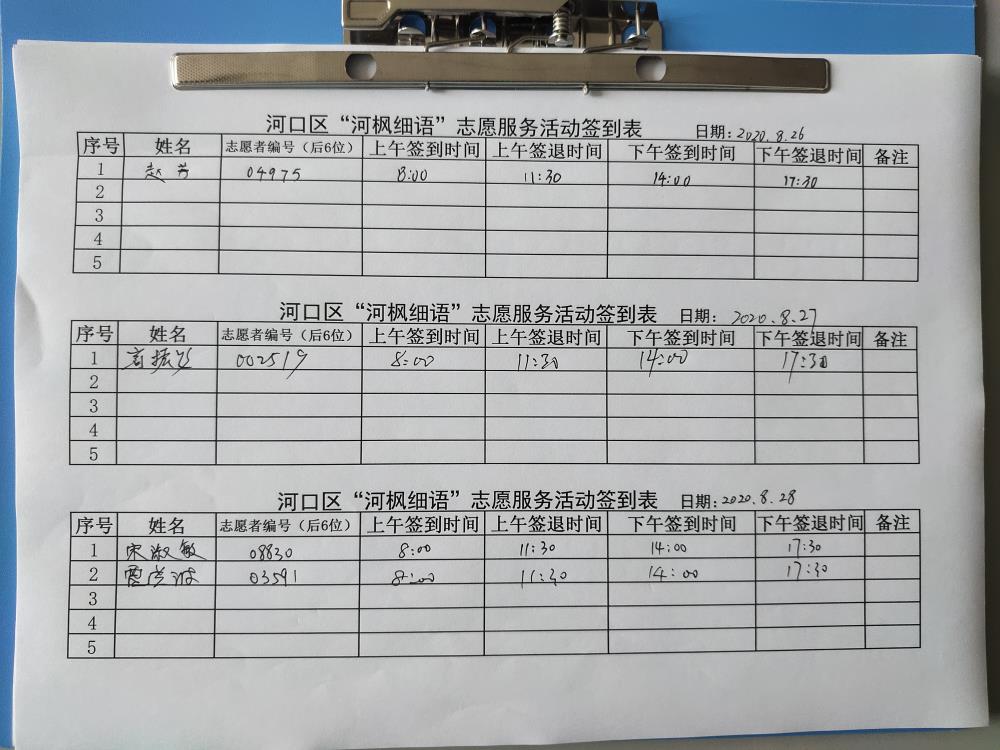 河口区“河枫细语”志愿服务活动签到表 日期：2020.8.26
序号 姓名 志愿者编号（后6位） 上午签到时间 上午签退时间 下午签到时间 下午签退时间 备注
1 赵芳 04975 8:00 11:30 14:00 17:30
2
3
4
5
河口区“河枫细语”志愿服务活动签到表 日期：2020.8.27
序号 姓名 志愿者编号（后6位） 上午签到时间 上午签退时间 下午签到时间 下午签退时间 备注
1 002519 8:00 11:30 14:00 17:30
2
3
4
5
河口区“河枫细语”志愿服务活动签到表 日期：2020.8.28
序号 姓名 志愿者编号（后6位） 上午签到时间 上午签退时间 下午签到时间 下午签退时间 备注
1 宋淑敏 08830 8:00 11:30 14:00 17:30
2 03591 8:00 11:30 14:00 17:30
3
4
5